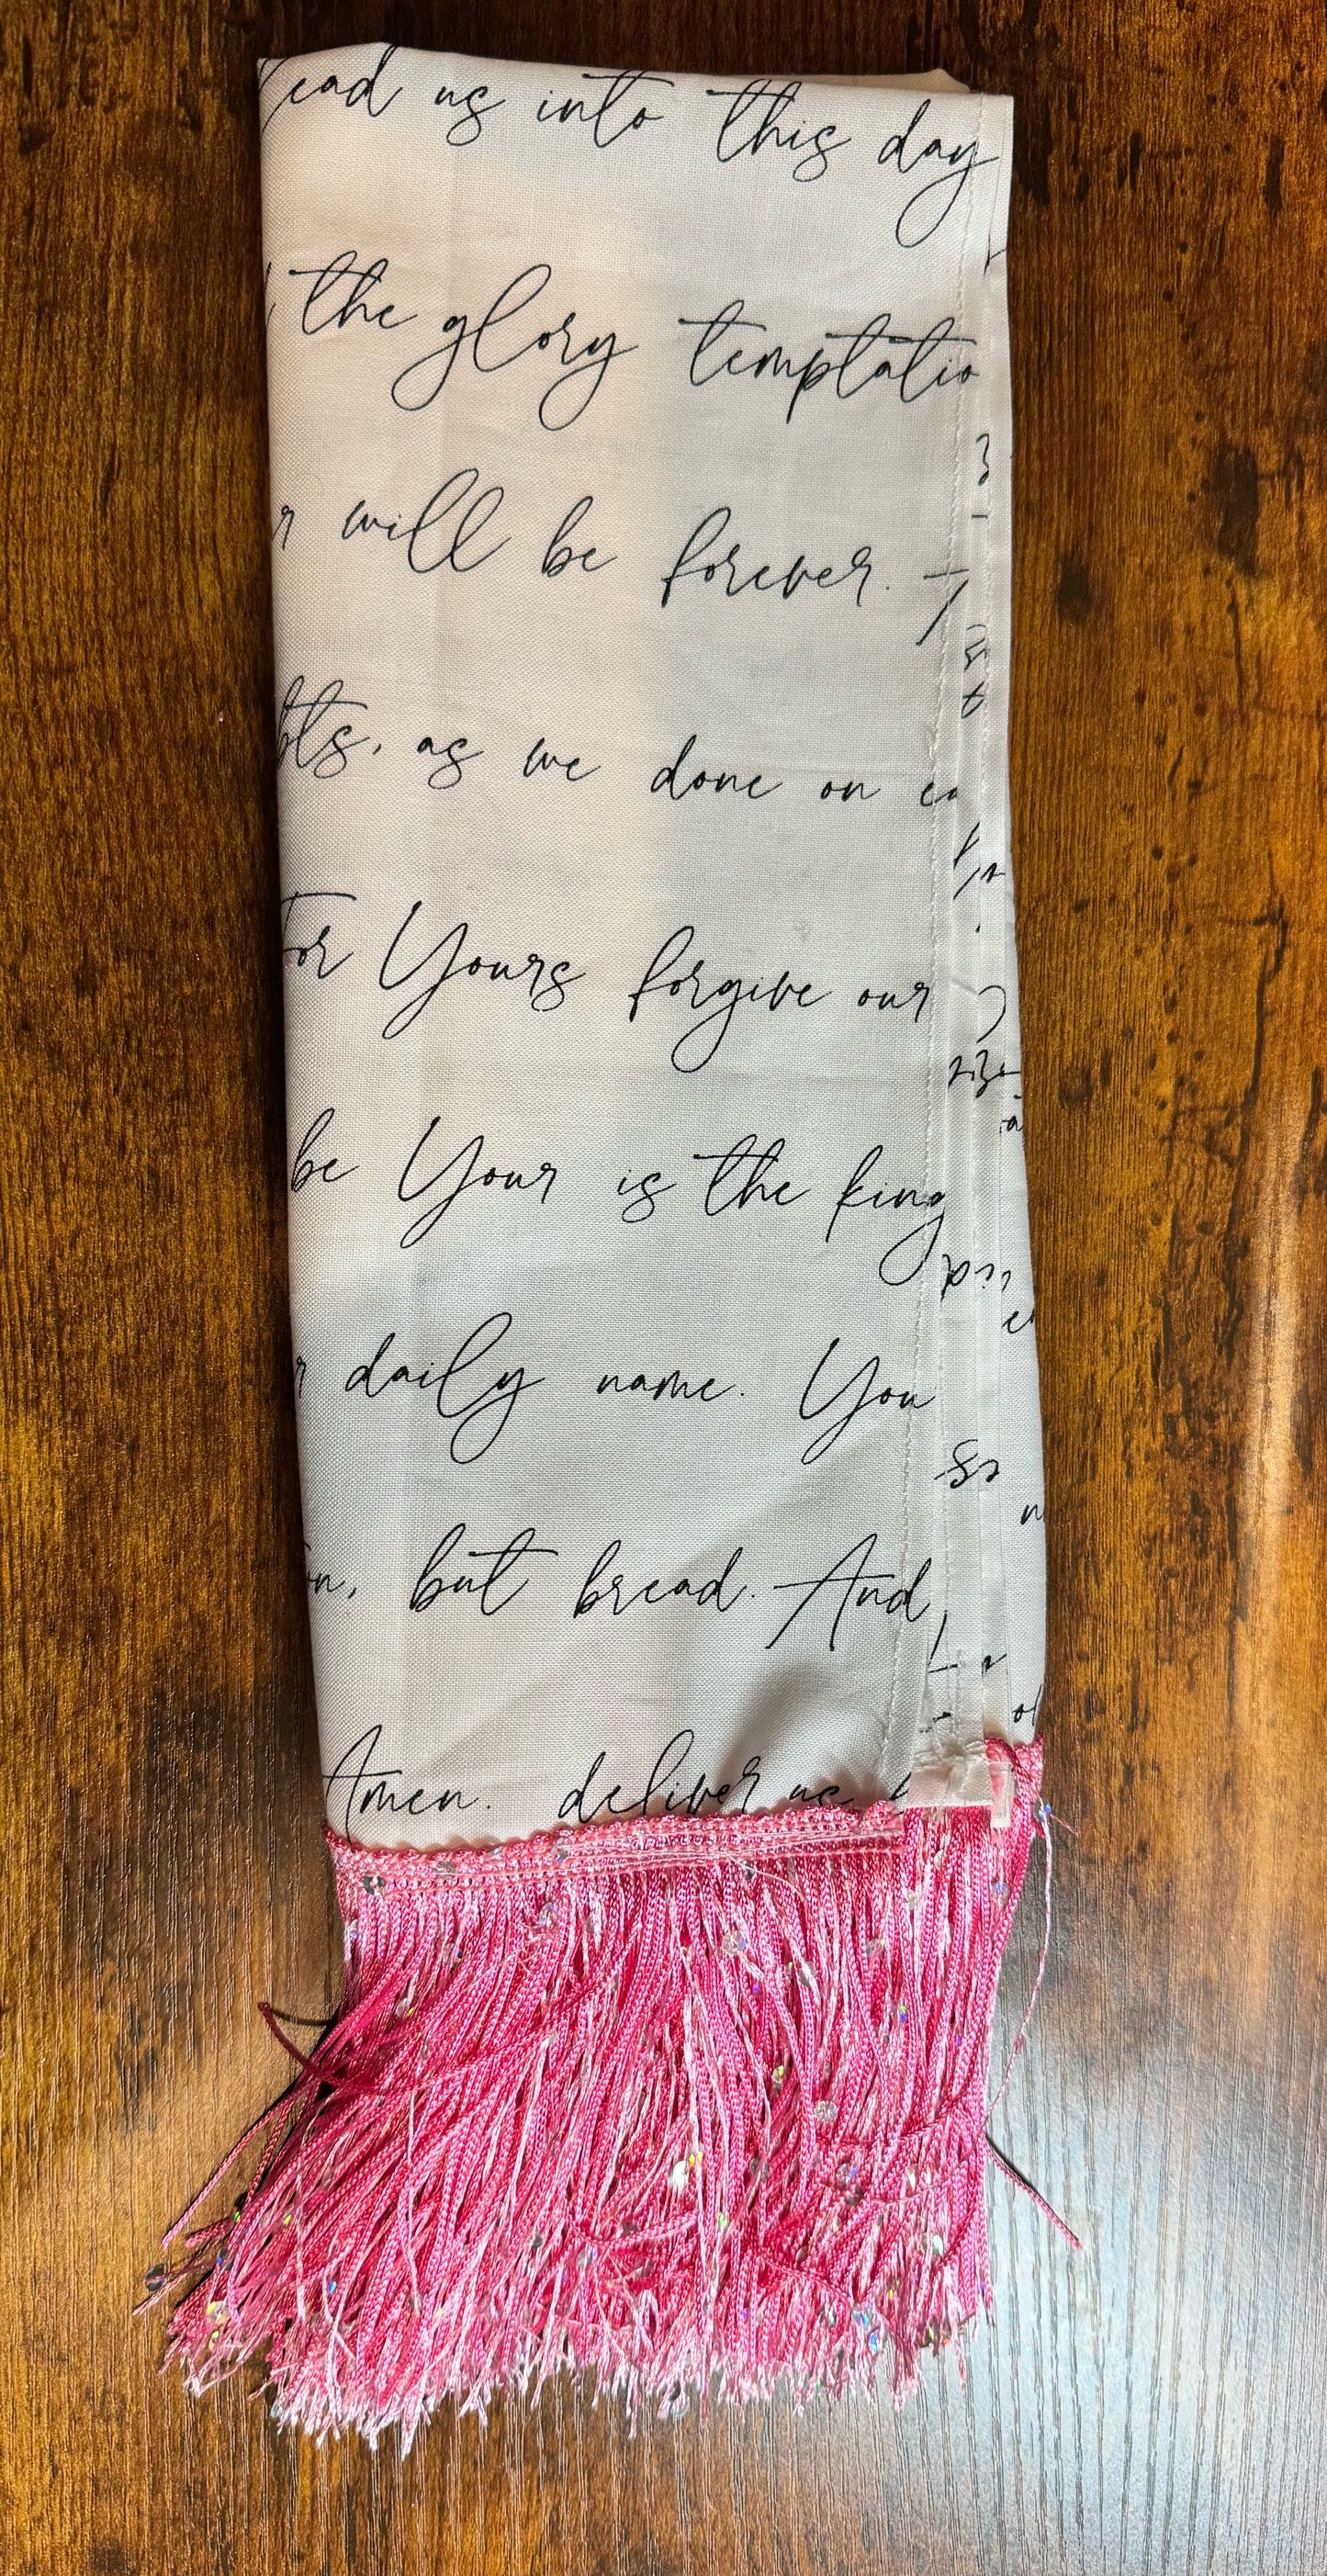 ead us into this day
the glory temptatio
r will be forever.
bts, as we done on ea
for Yours forgive our
be Your is the king
r daily name. You
on, but bread. And
Amen. deliver us